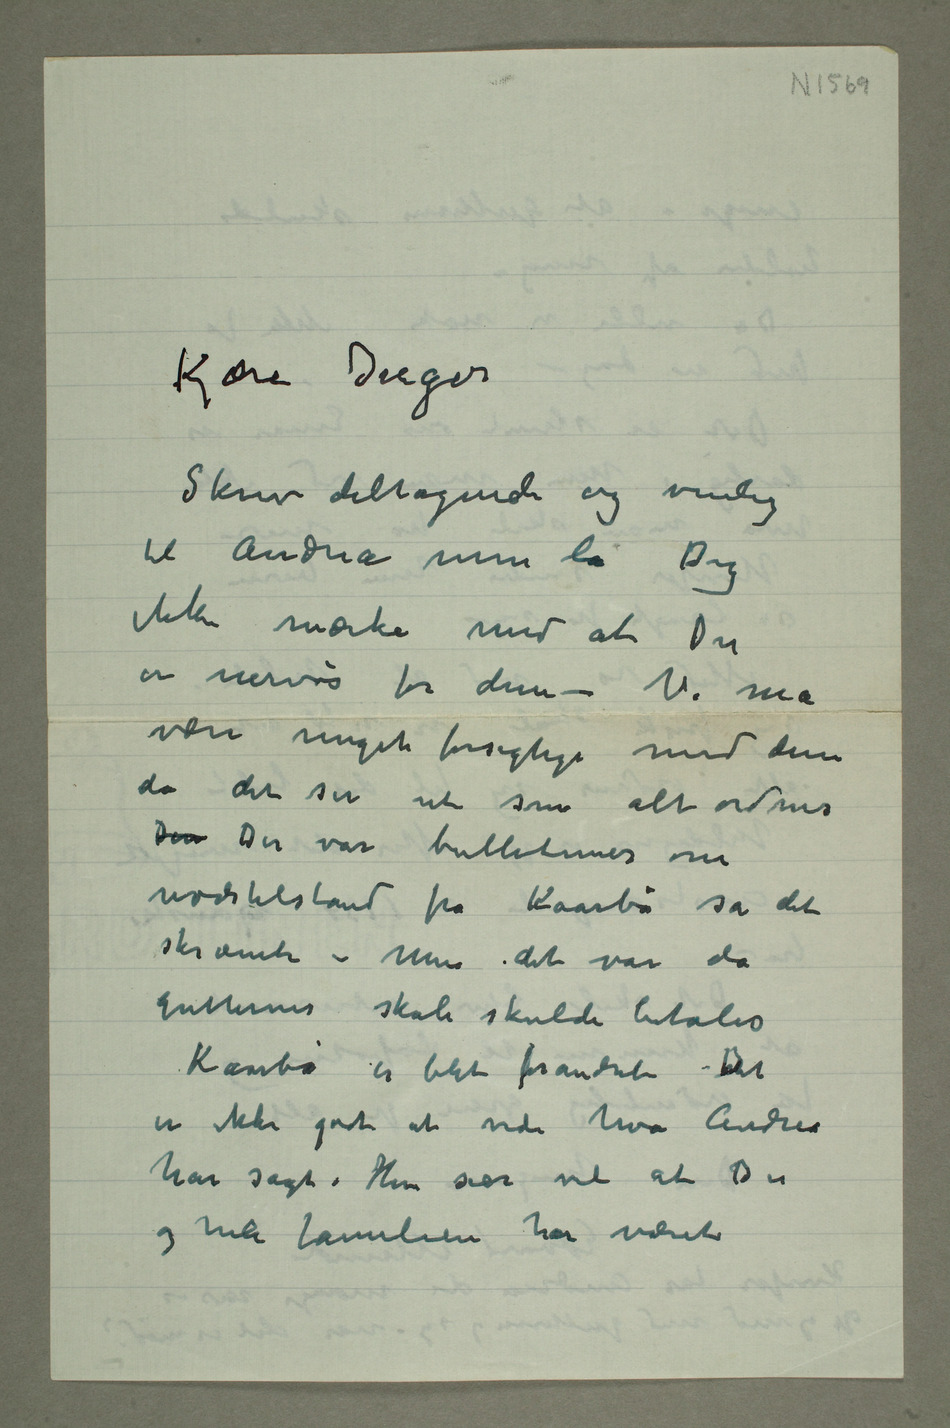 N1569
Kjære Inger
Skriv deltagende og venlig
til Andrea men la Dig
ikke mærke med at Du
er nervøs for dem – Vi må
være meget forsigtige med dem
da det ser ut som alt ordnes
Den Der var bulletiner om
nødstilstand fra Kaarbø sa det
skræmte – Men det var da
gutternes skole skulde betales
Kaarbø er blit forandret – Det
er ikke godt at vide hva Andrea
har sagt. Hun sier vel at Du
og hele familien har været